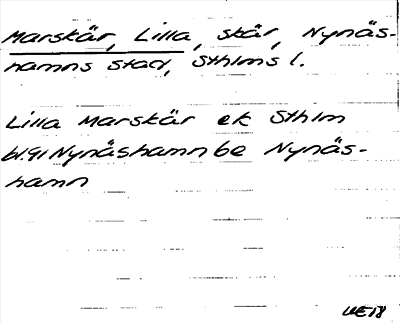 Marskär, Lilla, skär, Nynäs-
hamns stad, Sthlms l.
Lilla Marskär ek Sthlm
bl.91 Nynäshamn 6e Nynäs-
hamn